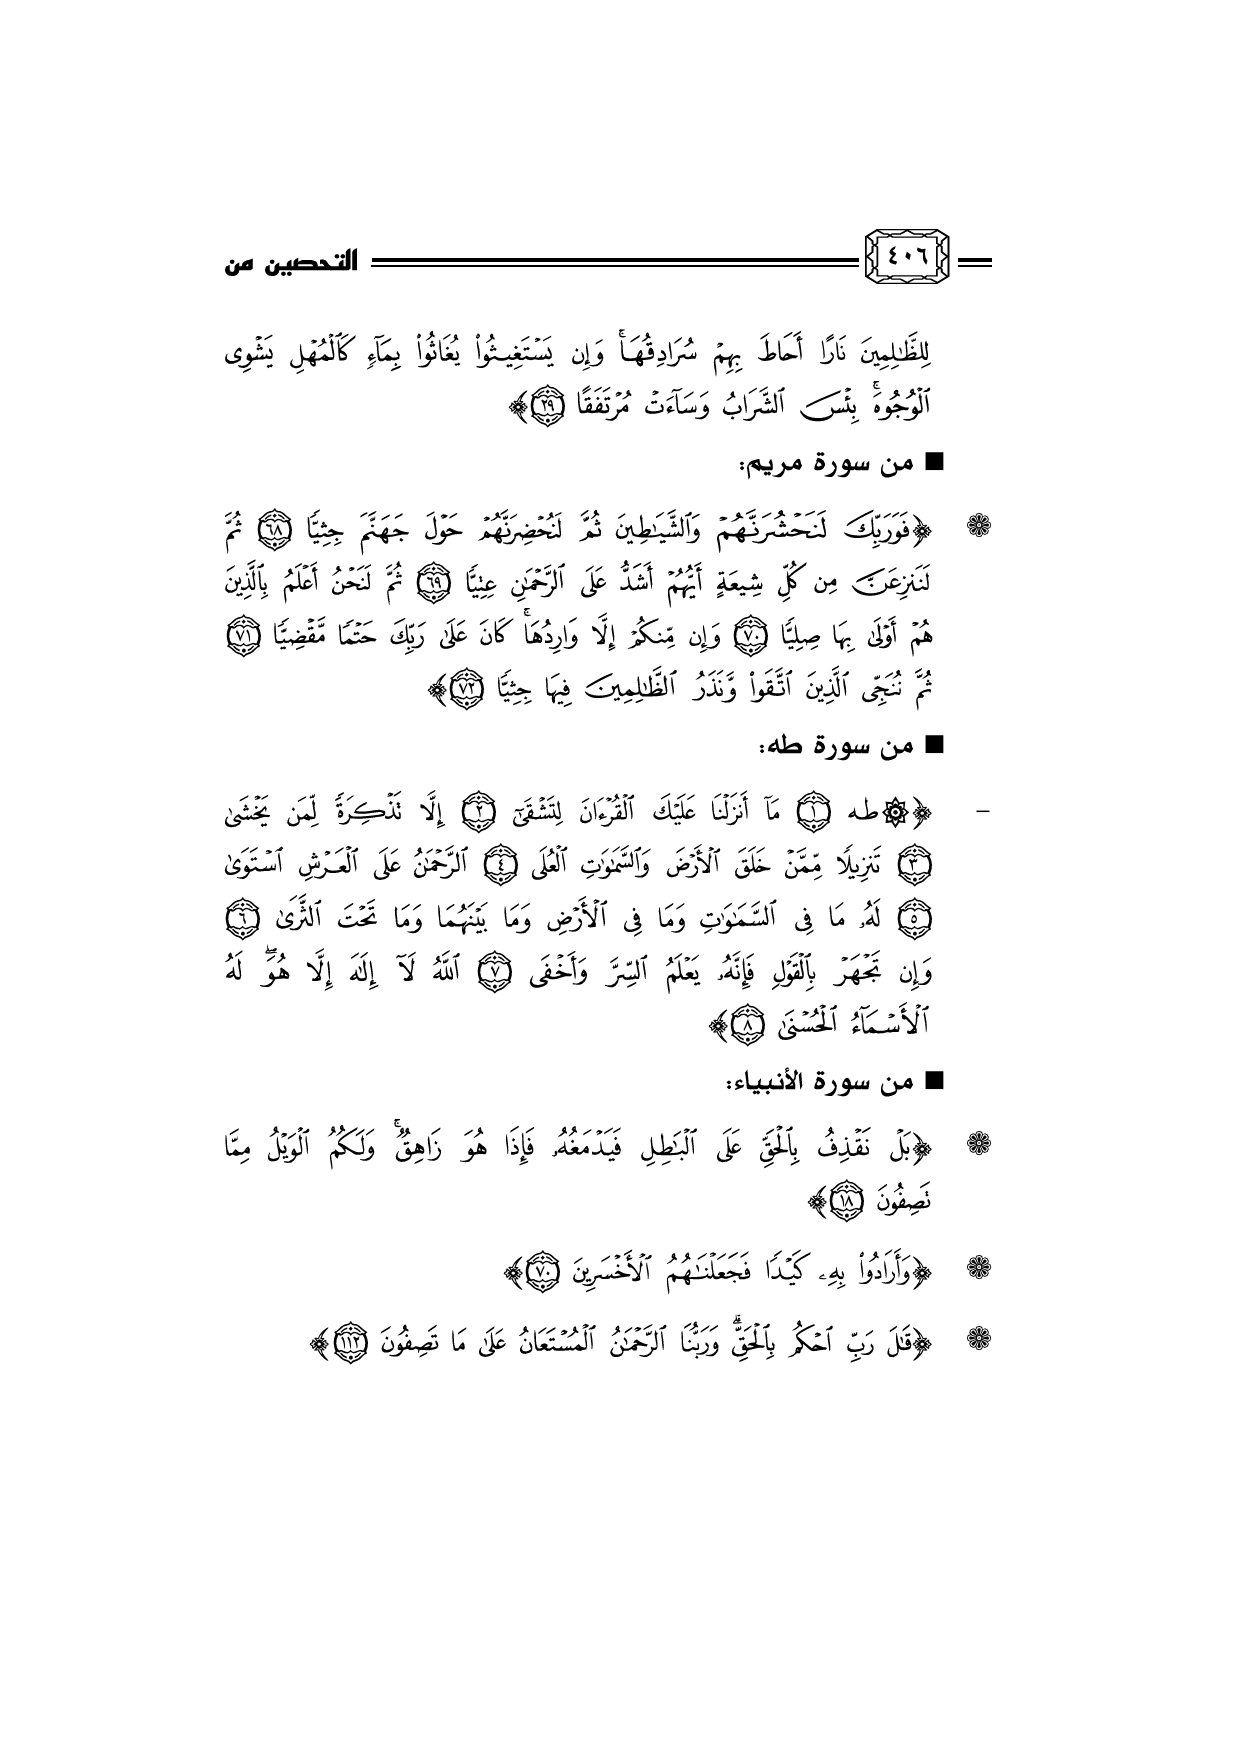 ٤٠٦ التحصين من
لِلظَّٰلِمِينَ نَارًا أَحَاطَ بِهِمۡ سُرَادِقُهَاۚ وَإِن يَسۡتَغِيثُواْ يُغَاثُواْ بِمَآءٖ كَٱلۡمُهۡلِ يَشۡوِي
ٱلۡوُجُوهَۚ بِئۡسَ ٱلشَّرَابُ وَسَآءَتۡ مُرۡتَفَقًا ٢٩﴾
■ من سورة مريم:
﴿فَوَرَبِّكَ لَنَحۡشُرَنَّهُمۡ وَٱلشَّيَٰطِينَ ثُمَّ لَنُحۡضِرَنَّهُمۡ حَوۡلَ جَهَنَّمَ جِثِيّٗا ٦٨ ثُمَّ
لَنَنزِعَنَّ مِن كُلِّ شِيعَةٍ أَيُّهُمۡ أَشَدُّ عَلَى ٱلرَّحۡمَٰنِ عِتِيّٗا ٦٩ ثُمَّ لَنَحۡنُ أَعۡلَمُ بِٱلَّذِينَ
هُمۡ أَوۡلَىٰ بِهَا صِلِيّٗا ٧٠ وَإِن مِّنكُمۡ إِلَّا وَارِدُهَاۚ كَانَ عَلَىٰ رَبِّكَ حَتۡمٗا مَّقۡضِيّٗا ٧١
ثُمَّ نُنَجِّي ٱلَّذِينَ ٱتَّقَواْ وَّنَذَرُ ٱلظَّٰلِمِينَ فِيهَا جِثِيّٗا ٧٢﴾
■ من سورة طه:
– ﴿۞طه ١ مَآ أَنزَلۡنَا عَلَيۡكَ ٱلۡقُرۡءَانَ لِتَشۡقَىٰٓ ٢ إِلَّا تَذۡكِرَةٗ لِّمَن يَخۡشَىٰ
٣ تَنزِيلٗا مِّمَّنۡ خَلَقَ ٱلۡأَرۡضَ وَٱلسَّمَٰوَٰتِ ٱلۡعُلَى ٤ ٱلرَّحۡمَٰنُ عَلَى ٱلۡعَرۡشِ ٱسۡتَوَىٰ
٥ لَهُۥ مَا فِي ٱلسَّمَٰوَٰتِ وَمَا فِي ٱلۡأَرۡضِ وَمَا بَيۡنَهُمَا وَمَا تَحۡتَ ٱلثَّرَىٰ ٦
وَإِن تَجۡهَرۡ بِٱلۡقَوۡلِ فَإِنَّهُۥ يَعۡلَمُ ٱلسِّرَّ وَأَخۡفَى ٧ ٱللَّهُ لَآ إِلَٰهَ إِلَّا هُوَۖ لَهُ
ٱلۡأَسۡمَآءُ ٱلۡحُسۡنَىٰ ٨﴾
■ من سورة الأنبياء:
﴿بَلۡ نَقۡذِفُ بِٱلۡحَقِّ عَلَى ٱلۡبَٰطِلِ فَيَدۡمَغُهُۥ فَإِذَا هُوَ زَاهِقٞۚ وَلَكُمُ ٱلۡوَيۡلُ مِمَّا
تَصِفُونَ ١٨﴾
﴿وَأَرَادُواْ بِهِۦ كَيۡدٗا فَجَعَلۡنَٰهُمُ ٱلۡأَخۡسَرِينَ ٧٠﴾
﴿قَٰلَ رَبِّ ٱحۡكُم بِٱلۡحَقِّۗ وَرَبُّنَا ٱلرَّحۡمَٰنُ ٱلۡمُسۡتَعَانُ عَلَىٰ مَا تَصِفُونَ ١١٢﴾